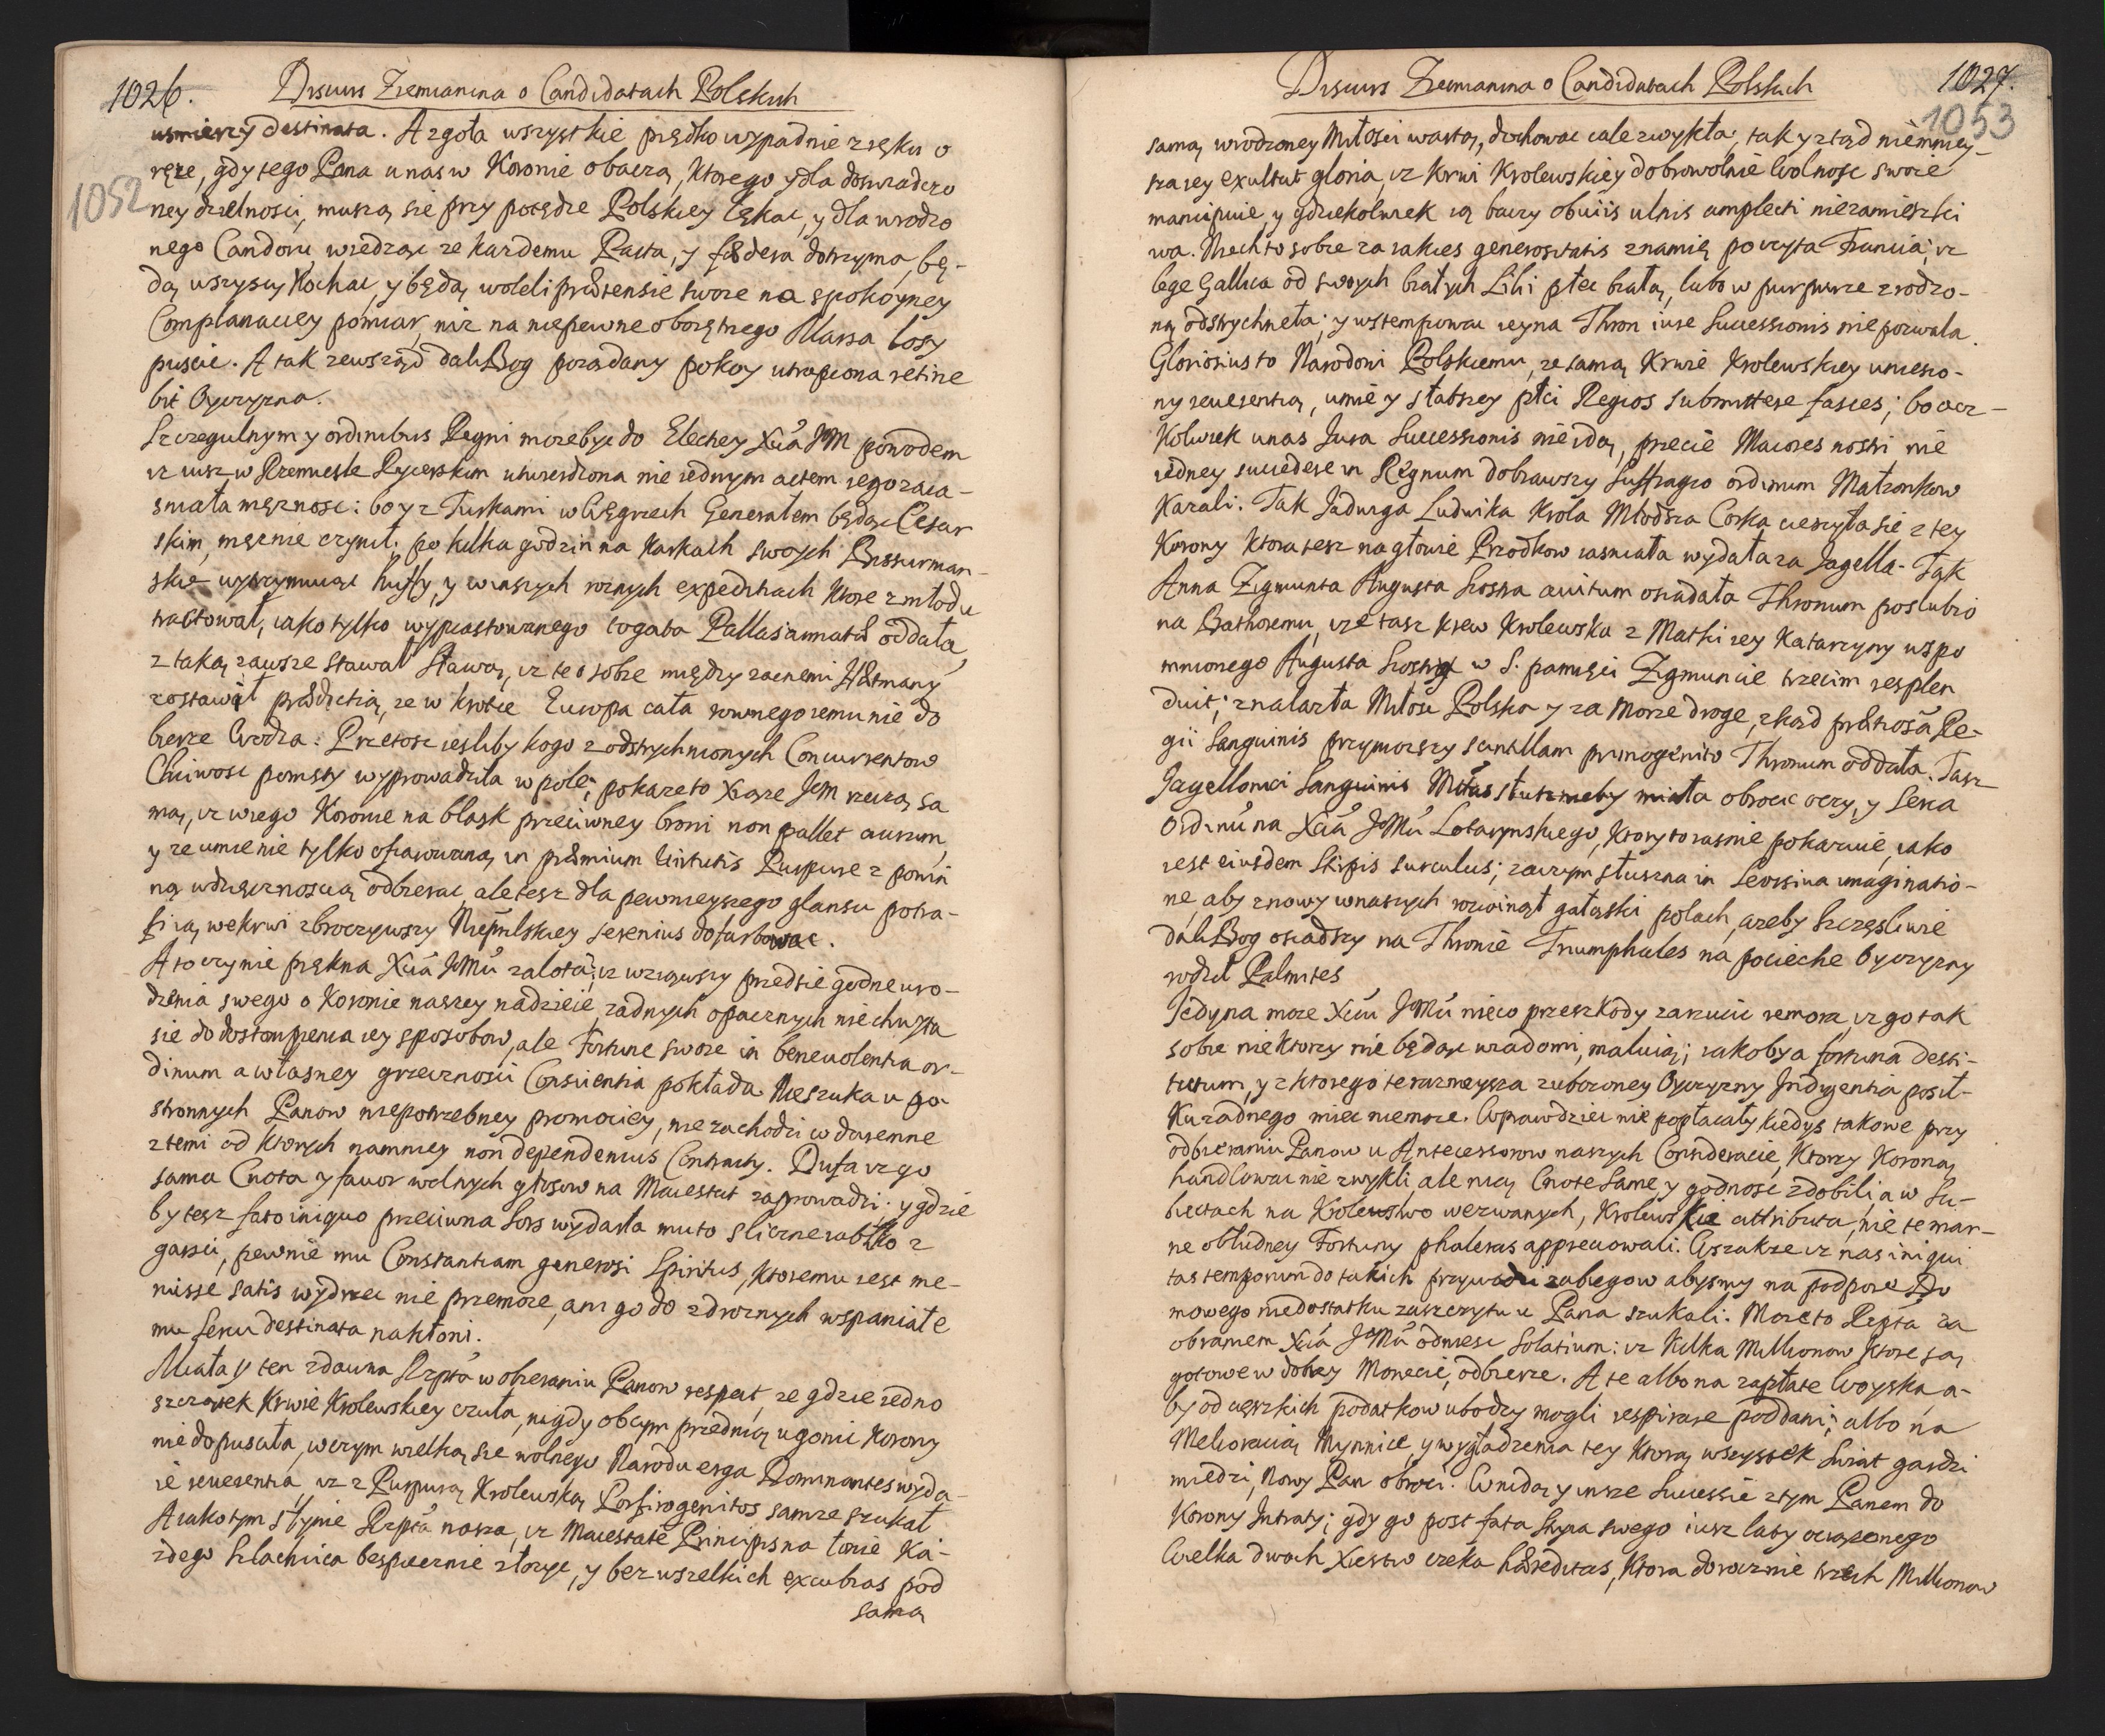 1026. Discurs Ziemianina o Candidatach Polskich
1052
usmierzy destinata. A zgoła wszystkie prędko wypadnie z ręku o
ręże, gdy tego Pana u nas w Koronie obaczą, ktorego y dla doswiadczo
ney dzielnosci, muszą się przy potędze Polskiey lękac, y dla wrodzo
nego Candoru, wiedząc ze kazdemu Pacta, y fœdera dotrzyma, bę-
dą wszyscy kochac, y będą woleli prætensie swoie na spokoyney
Complanaciey pomiar, niz na niepewne oboiętnego Marsa losy
puscic. A tak zewsząd daliBog pozadany pokoy utrapiona retine
bit Oyczyzna.
Szczegulnym y ordinibus Regni moze byc do Elekcyey Xcia JM powodem
iz iusz w Rzemiesle Rycerskim utwierdzona nie iednym actem iego zaia-
sniała męznosc: bo y z Turkami w Węgrzech Generałem będąc Cesar
skim, męznie czynił; po kilka godzin na karkach swoych Bissurman-
skie wytrzymuiąc huffy, y w inszych roznych expeditiach ktore z młodu
tractował, iako tylko wypiastowanego togata Pallas armatæ oddała,
z taką zawsze stawał sławą, iz te o sobie między zacnemi Hetmany
zostawił prædictią, ze w krotce Europa cała rownego iemu nie do
bierze Wodza. Przetosz iesliby kogo z odstrychnionych Concurrentow
Chciwosc pomsty wyprowadziła w pole; pokaze to Xiąze JM rzeczą sa
mą, iz w iego Koronie na blask przeciwney broni non pallet aurum,
y ze umie nie tylko ofiarowaną in præmium Virtutis Purpure z powin
ną wdzięcznoscią odbierac, ale tesz dla pewnieyszego glansu potra-
fi ią, we krwi zbroczywszy Nieprzylskiey serenius dofarbowac.
A to czy nie piękna Xcia JMci zalota; iz wziąwszy przed się godne uro-
dzenia swego o Koronie naszey nadzieie, zadnych opacznych nie chwyta
się do dostompienia iey sposobow, ale Fortune swoie in beneuolentia or-
dinum a własney grzecznosci Conscientia pokłada. Nie szuka u po
stronnych Panow niepotrzebney promociey, nie zachodzi w daremne
z temi od ktorych namniey non dependemus Contracty. Dufa iz go
sama Cnota y fauor wolnych głosow na Maiestat zaprowadzi: y gdzie
by tesz fato iniquo przeciwna Sors wydarła mu to sliczne iabłko z
garsci, pewnie mu Constantiam generosi Spiritus, ktoremu iest me-
ruisse satis wydrzec nie przemoze, ani go do zdroznych wspaniałe
mu sercu destinata nakłoni.
Miała y ten zdawna Rzpta w obieraniu Panow respect, ze gdzie iedno
szczątek Krwie Krolewskiey czuła, nigdy obcym przednią ugonic Korony
nie dopusała, w czym wielką się wolnego Narodu erga Dominantes wyda-
ie reuerentia iz z Purpurą Krolewską Porfirogenitos samze szukał
A iako tym słynie Rzpta nasza, iz Maiestate Principis na łonie Ka-
zdego Szlachcica bespiecznie złozyc, y bez wszelkich excubias pod
samą
Discurs Ziemianina o Candidatach Polskich 1027.
1053
samą wrodzoney Miłosci wartą, dochowac cale zwykła, tak y ztąd niemniey-
sza iey exultat gloria, iz Krwi Krolewskiey dobrowolnie Wolnosc swoie
mancipuie, y gdziekolwiek ią baczy obuiis ulnis amplecti niezamieszki
wa. Niech to sobie za iakies generositatis znamię poczyta Francia, iz
lege Gallica od swoych białych Lilii płec białą, lubo w purpurze zrodzo-
ną odstrychneła; y wstempowac iey na Thron iure Successionis nie pozwala.
Gloriosius to Narodowi Polskiemu, ze samą Krwie Krolewskiey uniesio-
ny reuerentią, umie y słabszey płci Regios submittere fasces; bo acz-
kolwiek u nas Jura Successionis nie idą, przecie Maiores nostri nie
iedney succedere in Regnum dobrawszy suffragio ordinum Małzonkow
Kazali. Tak Jadwiga Ludwika Krola Młodsza Corka cieszyła się z tey
Korony ktora tesz na głowie Przodkow iasniała wydała za Jagella. Tak
Anna Zigmunta Augusta Siostra auitum osiadała Thronum poslubio
na Bathoremu, ize tasz krew Krolewska z Matki iey Katarzyny wspo
mnionego Augusta Siostry w S. pamięci Zigmuncie trzecim resplen
duit; znalazła Miłosc Polska y za Morze droge, zkąd prætiosa Re-
gii Sanguinis przyniozszy scintillam primogenito Thronum oddała. Tasz
Jagellonici Sanguinis Miłosc słuszneby miała obrocic oczy, y serca
Ordinū na Xcia JMci Lotaryńskiego, ktory to iasnie pokazuie, iako
iest eiusdem Stirpis surculus; zaczym słuszna in Seossiua imaginatio-
ne, aby znowy w naszych rozwinął gałąski polach, azeby Szczęsliwie
daliBog osiadszy na Thronie Triumphales na pocieche Oyczyzny
rodził Palmites
Jedyna moze Xciu JMci nieco przeszkody zarzucic remora, iz go tak
sobie niektorzy nie będąc wiadomi, maluią; iakoby a fortuna desti-
tutum, y z ktorego terazneysza zubozoney Oyczyzny Indigentia posił-
ku zadnego miec niemoze. Wprawdziec nie popłacały kiedys takowe przy
odbieraniu Panow u Antecessorow naszych Consideracie, ktorzy Koroną
handlowac nie zwykli, ale nią Cnote same y godnosc zdobili, a w Su-
biectach na Krolewstwo wezwanych, Krolewskie attributa, nie te mar-
ne obłudney Fortuny phaleras appretiowali. Wszakze iz nas iniqui
tas temporum do takich przywodzi zabiegow abysmy na podpore Do
mowego niedostatku zaszczytu u Pana szukali. Moze to Rzpta za
obraniem Xcia JMci odniesc Solatium: iz kilka Millionow ktore są
gotowe w dobrey Monecie, odbierze. A te albo na zapłate Woyska a-
by od cięszkich podatkow ubodzy mogli respirare poddani; albo na
Melioracią Mynnice, y wygładzenia tey ktorą wszystek swiat gardzi
miedzi, nowy Pan obroci. Wnidą y insze Successie z tym Panem do
Korony Intraty; gdy go post fata Stryia swego iusz laty ociązonego
Wielka dwoch Xięstw czeka hæreditas, ktora dorocznie trzech Millionow